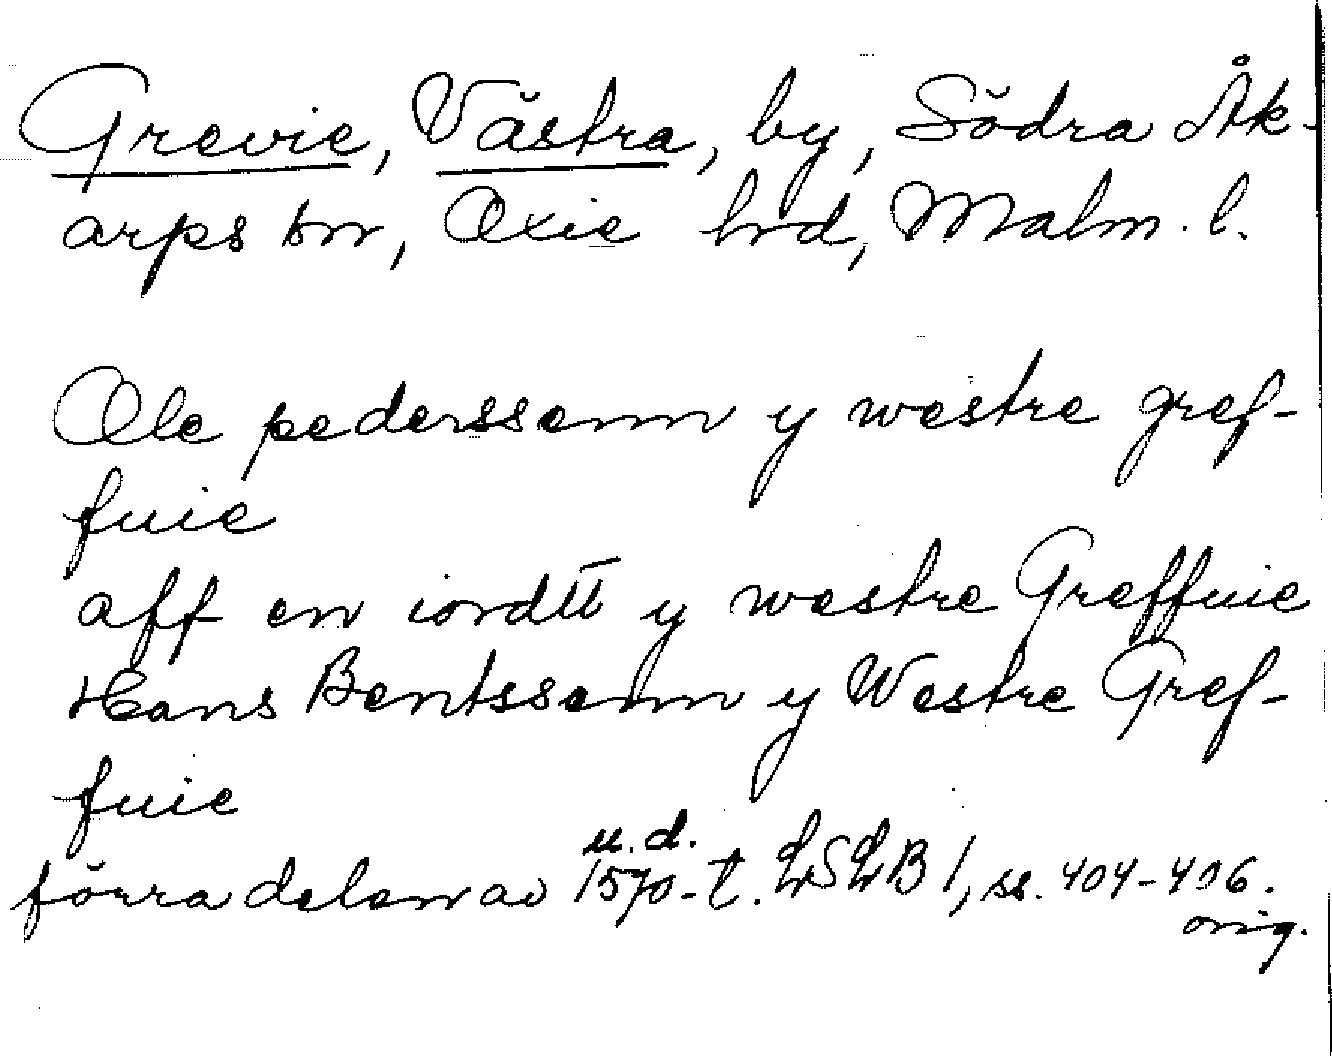 Grevie, Västra, by, Södra Åk-
arps sn, Oxie hrd, Malm. l.
Ole pederssenn y westre gref-
fuie
aff en iordtt y westre Greffuie
Hans Bentssenn y Westre Gref-
fuie
u. d.
förra delen av 1570-t. LSLB 1, ss. 404-406.
orig.